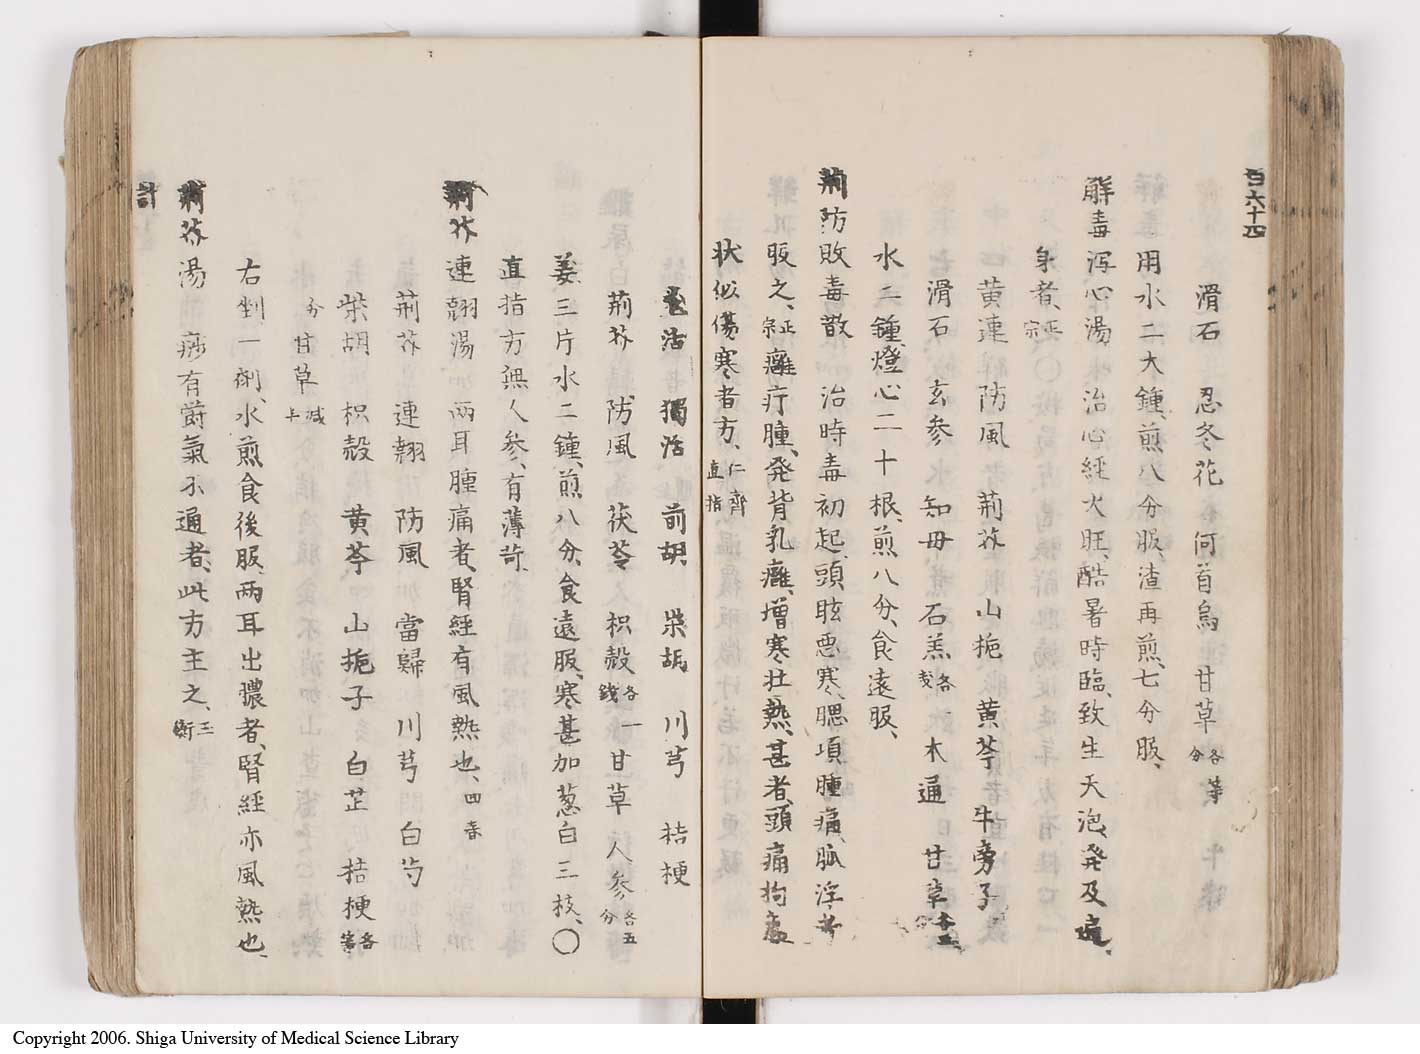 百六十四
滑石 忍冬花 何首烏 甘草各等分
用水二大鍾、煎八分服、渣再煎、七分服、
解毒瀉心湯 治心経火旺、酷暑時臨、致生天泡、発及遍
身者正宗
黄連 防風 荊芥 山梔 黄芩 牛旁子
滑石 玄参 知母 石羔各戔 木通 甘草
水二鍾、燈心二十根、煎八分、食遠服、
荊防敗毒散 治時毒初起、頭眩悪寒、腮項腫痛、脈浮者
服之、正宗 癰疔腫、発背乳癰、増寒壮熱、甚者、頭痛拘急
状似傷寒者方、仁齊直指
羌活 獨活 前胡 柴胡 川芎 桔梗
荊芥、防風 茯苓 枳殻各一錢 甘草 人参各五分
姜三片水二鍾、煎八分、食遠服、寒甚加葱白三枝、〇
直指方無人参、有薄苛
荊芥連翹湯 両耳腫痛者、腎経有風熱也、回春
荊芥 連翹 防風 當歸 川芎 白芍
柴胡 枳殻 黄芩 山梔子 白芷 桔梗各等
分 甘草減半
右剉一劑、水煎食後服、両耳出膿者、腎経亦風熱也、
荊芥湯 痧有欝氣不通者、此方主之、玉衡
計